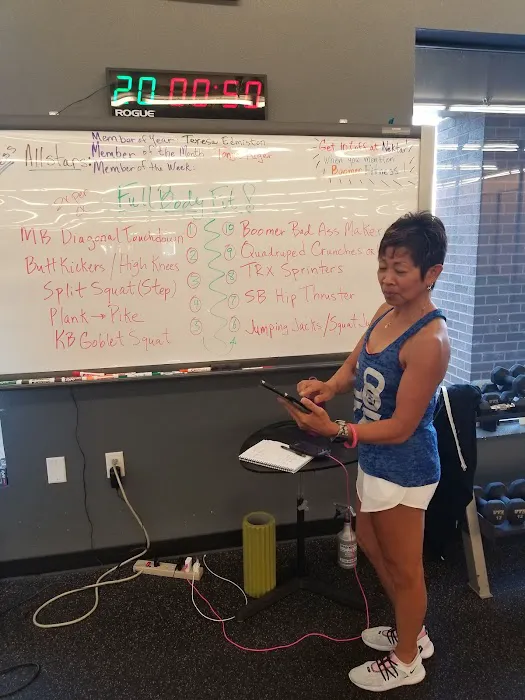 20 00:50
ROGUE
Member of Year Teresa Edmiston
Member of the Month:
Member of the Week:
Allstars
Get InLufs at Nektar
When you Mention
Boomer Fitness
Full Body Fit 8
MB Diagonal Touchdown ①
Butt Kickers / High Knees ②
Split Squat (Step) ③
Plank → Pike ④
KB Goblet Squat ⑤
⑩ Boomer Bad Ass Maker
⑨ Quadruped Crunches
⑧ TRX Sprinters
⑦ SB Hip Thruster
Jumping Jacks / Squat